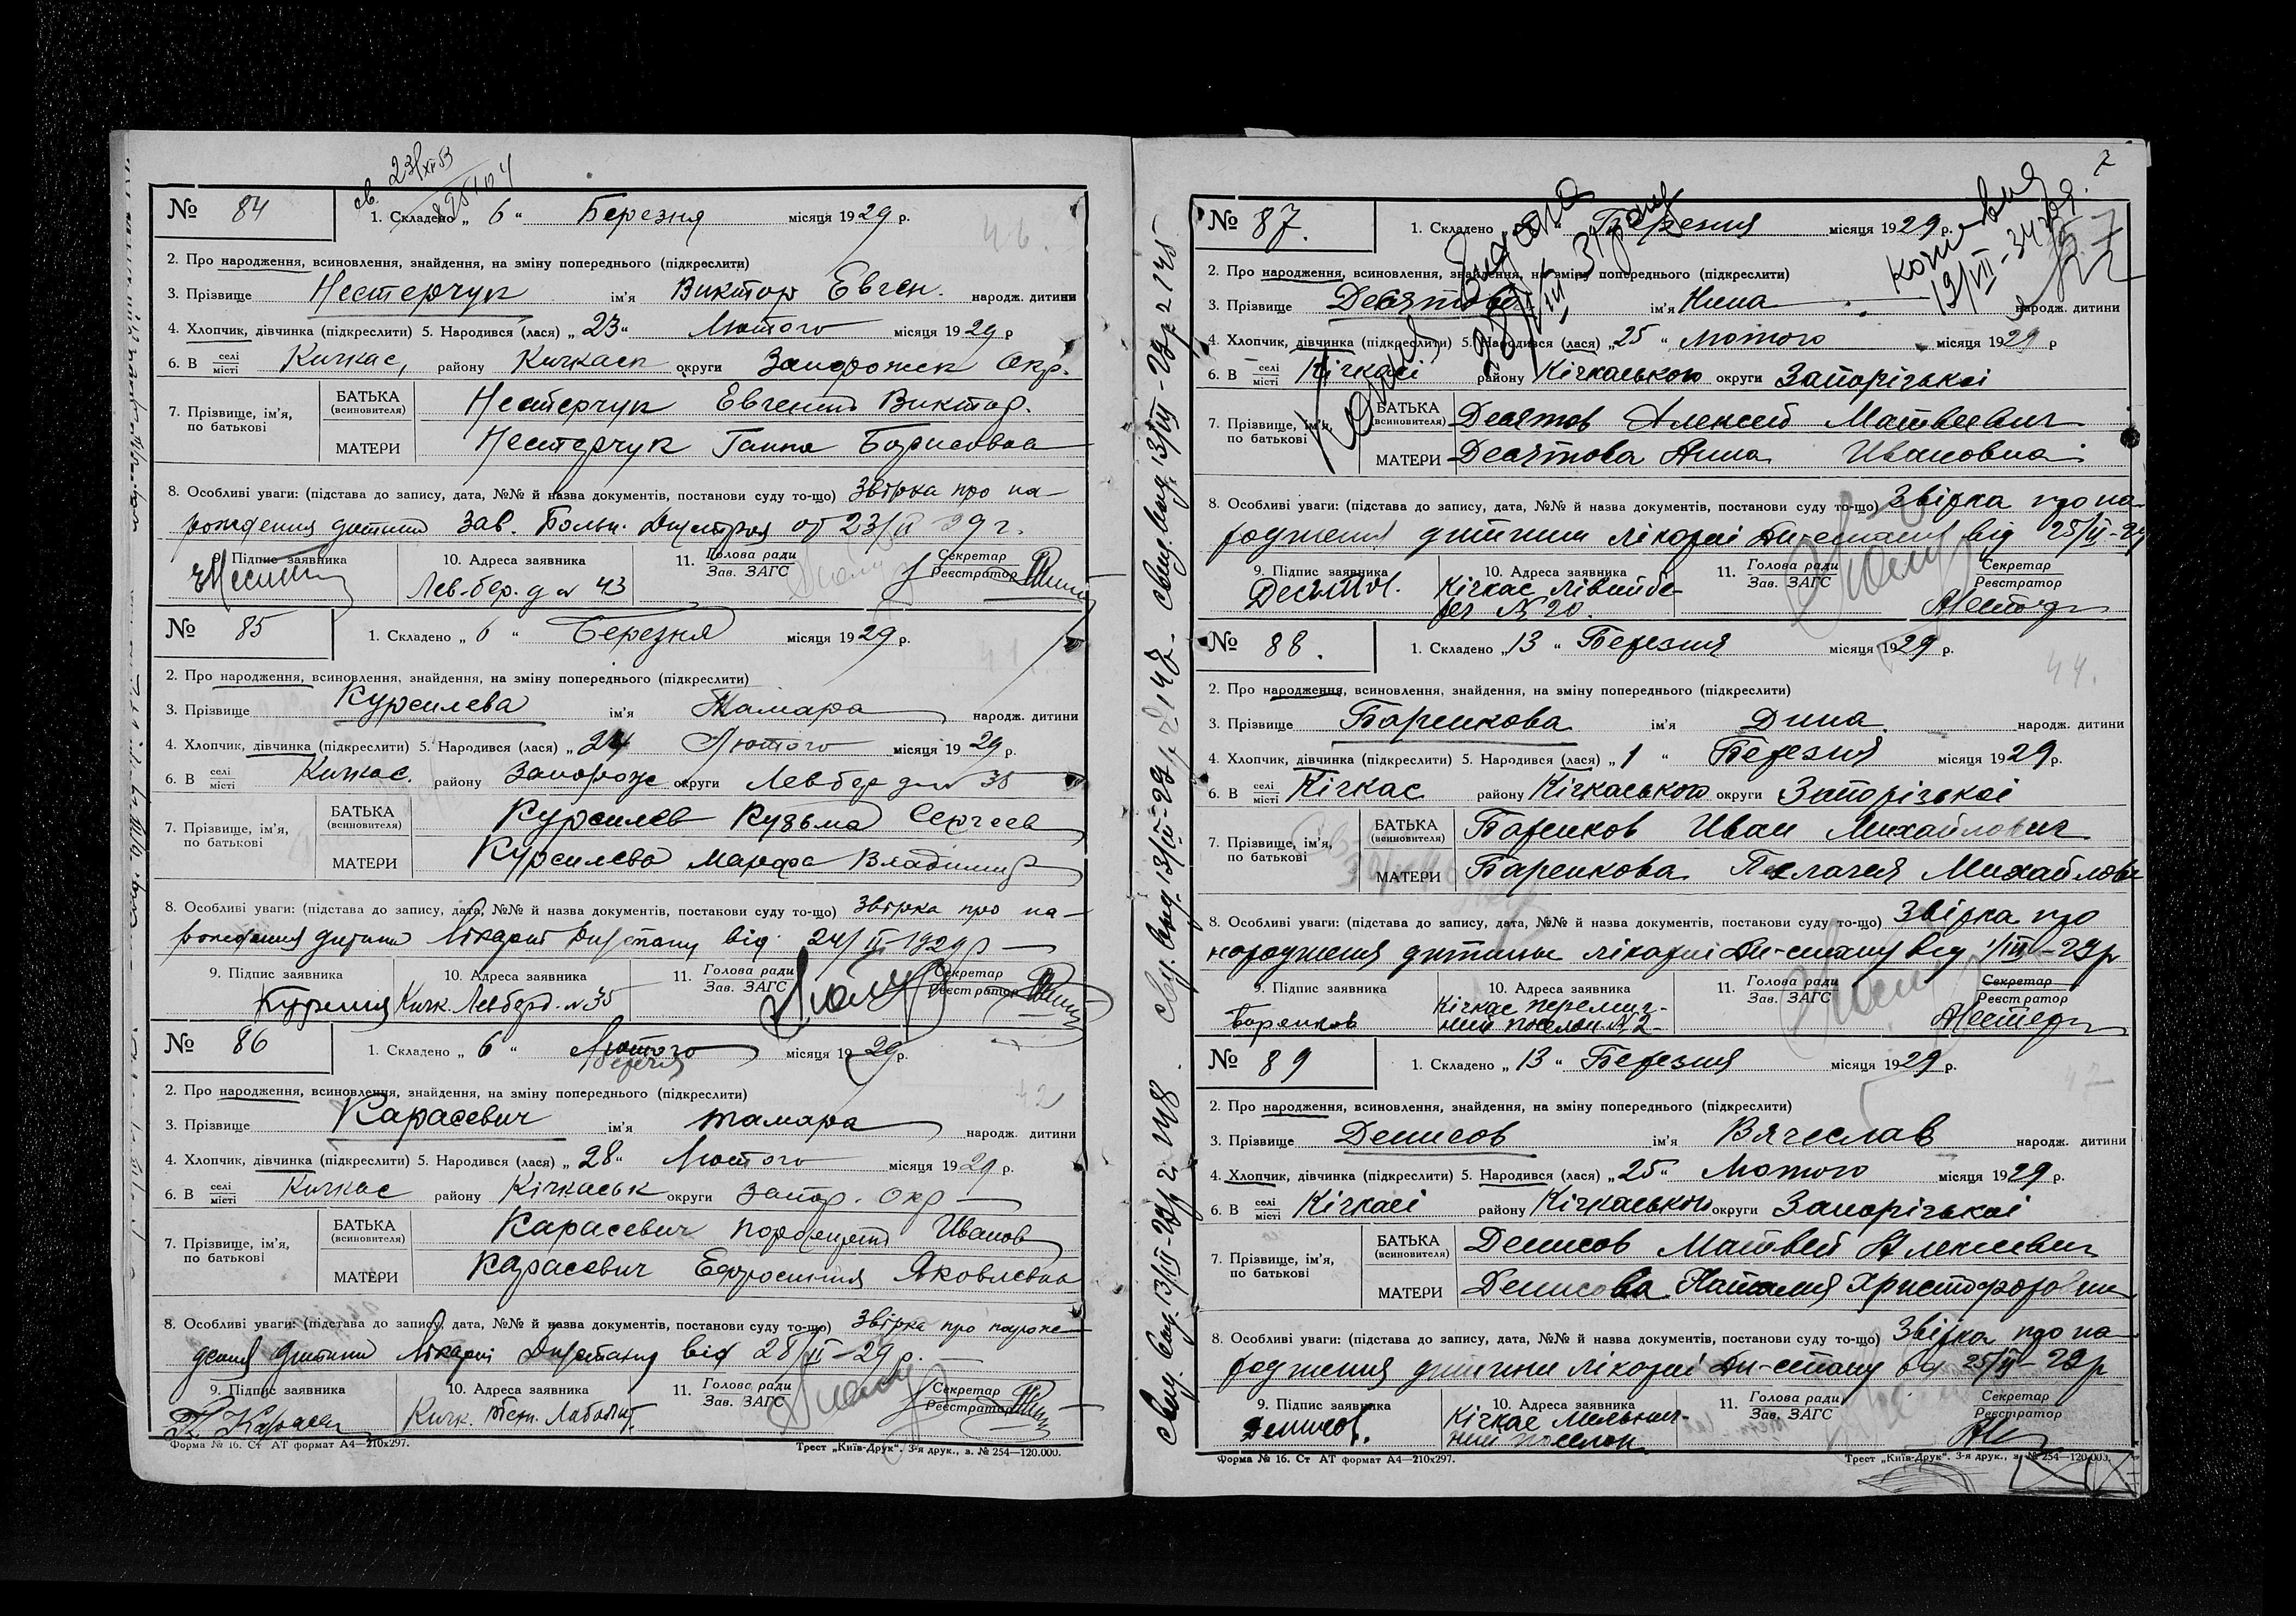 св. 23/XII 53
№ 84
1. Складено „ 6 “ Березня місяця 1929 р.
2. Про народження, всиновлення, знайдення, на зміну попереднього (підкреслити)
3. Прізвище Нестерчук ім'я Виктор Евген. народж. дитини
4. Хлопчик, дівчинка (підкреслити) 5. Народився (лася) „ 23 “ Лютого місяця 1929 р
6. В селі місті Кичкас, району Кичкаск округи Запорожск Окр.
7. Прізвище, ім'я, по батькові
БАТЬКА (всиновителя) Нестерчук Евгений Виктор.
МАТЕРИ Нестерчук Ганна Борисовна
8. Особливі уваги: (підстава до запису, дата, №№ й назва документів, постанови суду то-що) Звірка про на-
рождения дитини Зав. Больн. Днепростроя от 23/II 29 г.
Підпис заявника 10. Адреса заявника 11. Голова ради Зав. ЗАГС Секретар Реєстратор
Лев-бер. д № 43
№ 85
1. Складено „ 6 “ Березня місяця 1929 р.
2. Про народження, всиновлення, знайдення, на зміну попереднього (підкреслити)
3. Прізвище Курсилева ім'я Тамара народж. дитини
4. Хлопчик, дівчинка (підкреслити) 5. Народився (лася) „ 24 Лютого місяця 1929 р.
6. В селі місті Кичкас. району Запорож округи Левбер д № 35
7. Прізвище, ім'я, по батькові
БАТЬКА (всиновителя) Курсилев Кузьма Сергеев
МАТЕРИ Курсилева Марфа Владимир
8. Особливі уваги: (підстава до запису, дата, №№ й назва документів, постакови суду то-що) Звірка про на-
рождения дитини Лікарні Дніпростану від 24/II-1929 р
9. Підпис заявника 10. Адреса заявника 11. Голова ради Зав. ЗАГС Секретар Реєстратор
Кичк. Левберд. № 35
№ 86
1. Складено „ 6 “ Лютого місяця 1929 р.
Березня
2. Про народження, всиновлення, знайдення, на зміну попереднього (підкреслити)
3. Прізвище Карасевич ім'я Тамара народж. дитини
4. Хлопчик, дівчинка (підкреслити) 5. Народився (лася) „ 28 “ Лютого місяця 1929 р.
6. В селі місті Кичкас району Кічкаськ округи Запор. Окр
7. Прізвище, ім'я, по батькові
БАТЬКА (всиновителя) Карасевич Иванов
МАТЕРИ Карасевич Ефросиния Яковлевна
8. Особливі уваги: (підстава до запису, дата, №№ й назва документів, постанови суду то-що) Звірка про нарож-
дения дитини Лікарні від 28/II-29 р.
9. Підпис заявника 10. Адреса заявника 11. Голова ради Зав. ЗАГС Секретар Реєстратор
Форма № 16. Ст АТ формат А4—210х297. Трест „Київ-Друк“. 3-я друк., з. № 254—120.000.
7
№ 87.
1. Складено „ “ Березня місяця 1929 р.
2. Про народження, всиновлення, знайдення, на зміну попереднього (підкреслити)
3. Прізвище Десятова ім'я Нина народж. дитини
4. Хлопчик, дівчинка (підкреслити) 5. Народився (лася) „ 25 “ Лютого місяця 1929 р
6. В селі місті Кічкасі району Кічкаського округи Запорізької
7. Прізвище, ім'я, по батькові
БАТЬКА (всиновителя) Десятов Алексей Матвеевич
МАТЕРИ Десятова Анна Ивановна
8. Особливі уваги: (підстава до запису, дата, №№ й назва документів, постанови суду то-що) Звірка про на-
родження дитини лікарні Дн-стану від 25/II-29
9. Підпис заявника 10. Адреса заявника 11. Голова ради Зав. ЗАГС Секретар Реєстратор
Кічкас лівий бе-
рег № 20.
№ 88.
1. Складено „ 13 “ Березня місяця 1929 р.
2. Про народження, всиновлення, знайдення, на зміну попереднього (підкреслити)
3. Прізвище Баренкова ім'я Дина народж. дитини
4. Хлопчик, дівчинка (підкреслити) 5. Народився (лася) „ 1 “ Березня місяця 1929 р.
6. В селі місті Кічкас району Кічкаського округи Запорізької
7. Прізвище, ім'я, по батькові
БАТЬКА (всиновителя) Баренков Иван Михайлович
МАТЕРИ Баренкова Пелагея Михайловн
8. Особливі уваги: (підстава до запису, дата, №№ й назва документів, постанови суду то-що) Звірка про
народження дитини лікарні Дн-стану від 1/III-29 р
9. Підпис заявника 10. Адреса заявника 11. Голова ради Зав. ЗАГС Секретар Реєстратор
Баренков
№ 89
1. Складено „ 13 “ Березня місяця 1929 р.
2. Про народження, всиновлення, знайдення, на зміну попереднього (підкреслити)
3. Прізвище Денисов ім'я Вячеслав народж. дитини
4. Хлопчик, дівчинка (підкреслити) 5. Народився (лася) „ 25 “ Лютого місяця 1929 р.
6. В селі місті Кічкасі району Кічкаського округи Запорізької
7. Прізвище, ім'я, по батькові
БАТЬКА (всиновителя) Денисов Матвей Алексеевич
МАТЕРИ Денисова Наталия Христофоровна
8. Особливі уваги: (підстава до запису, дата, №№ й назва документів, постанови суду то-що) Звірка про на-
родження дитини лікарні Дн-стану від 25/II-29 р
9. Підпис заявника 10. Адреса заявника 11. Голова ради Зав. ЗАГС Секретар Реєстратор
Денисов.
Кічкас Мельнич-
ний поселок
Форма № 16. Ст АТ формат А4—210х297. Трест „Київ-Друк“. 3-я друк., з. № 254—120.000.